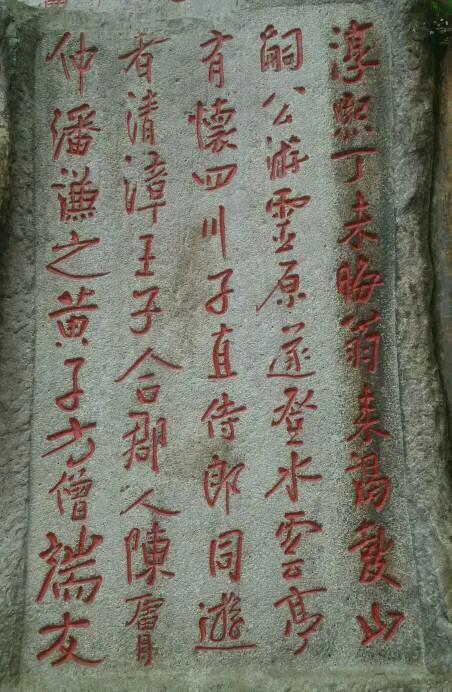 淳熙丁未晦翁来謁鼓山
嗣公游霊原遂登水雲亭
有懷四川子直侍郎同遊
者清漳王子合郡人陳膚
仲潘謙之黄子方僧端友